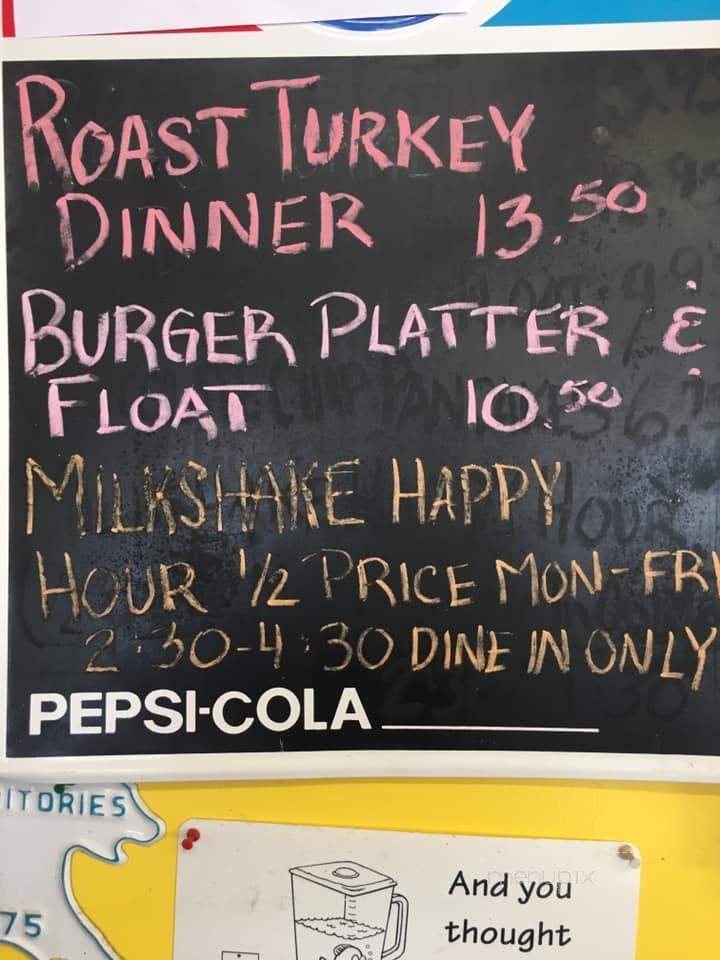 ROAST TURKEY
DINNER 13.50
BURGER PLATTER &
FLOAT 10.50
MILKSHAKE HAPPY
HOUR 1/2 PRICE MON-FRI
2:30-4:30 DINE IN ONLY
PEPSI-COLA
ITORIES
75
And you
thought